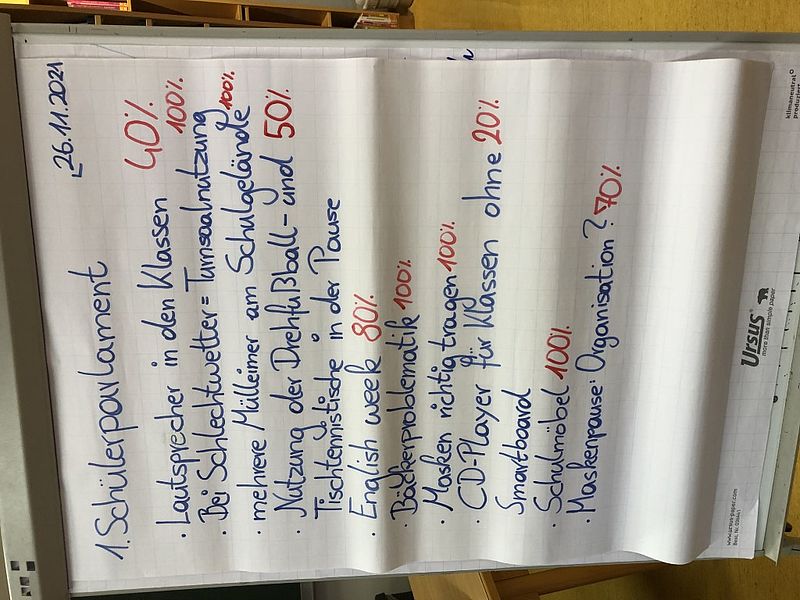 26.11.2021
1. Schülerparlament
· Lautsprecher in den Klassen 40%
· Bei Schlechtwetter = Turnsaalnutzung 100%
· mehrere Mülleimer am Schulgelände 100%
· Nutzung der Drehfußball- und 50%
Tischtennistische in der Pause
· English week 80%
· Bäckerproblematik 100%
· Masken richtig tragen 100%
· CD-Player für Klassen ohne 20%
Smartboard
· Schulmöbel 100%
· Maskenpause: Organisation? 70%
Ursus
more than simple paper
www.ursus-paper.com
klimaneutral